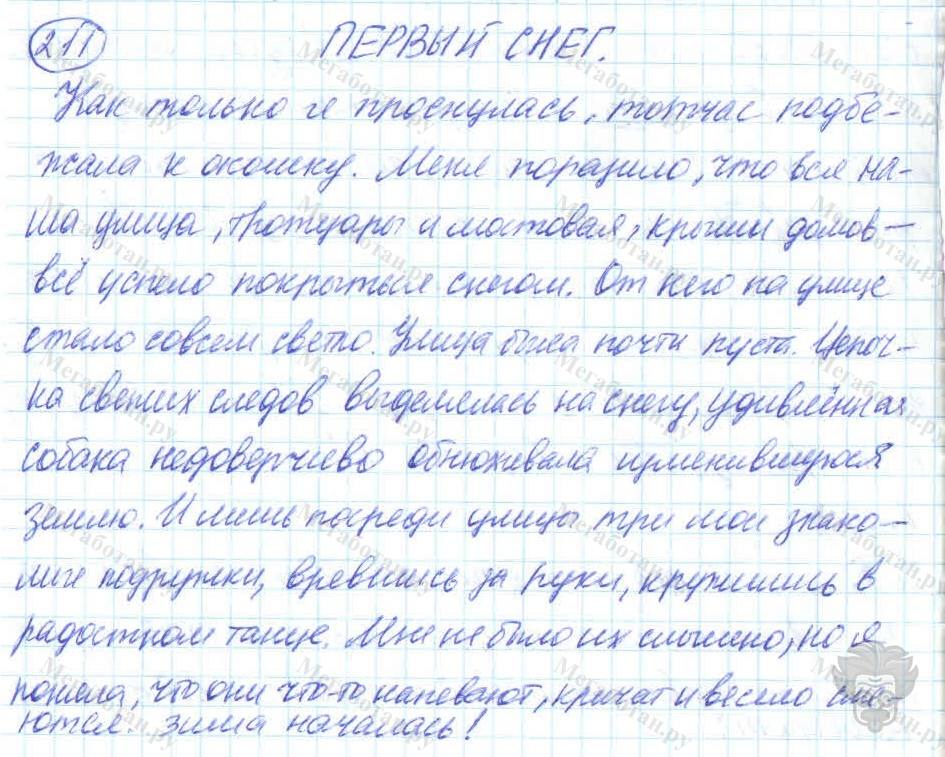 211 ПЕРВЫЙ СНЕГ.
Как только я проснулась, тотчас подбе-
жала к окошку. Меня поразило, что вся на-
ша улица, тротуары и мостовая, крыши домов —
всё успело покрыться снегом. От него на улице
стало совсем светло. Улица была почти пуста. Цепоч-
ка свежих следов выделялась на снегу, удивлённая
собака недоверчиво обнюхивала изменившуюся
землю. И лишь посреди улицы три мои знако-
мые подружки, взявшись за руки, кружились в
радостном танце. Мне не было их слышно, но я
поняла, что они что-то напевают, кричат и весело сме-
ются. Зима началась!
Мегаботан.ру